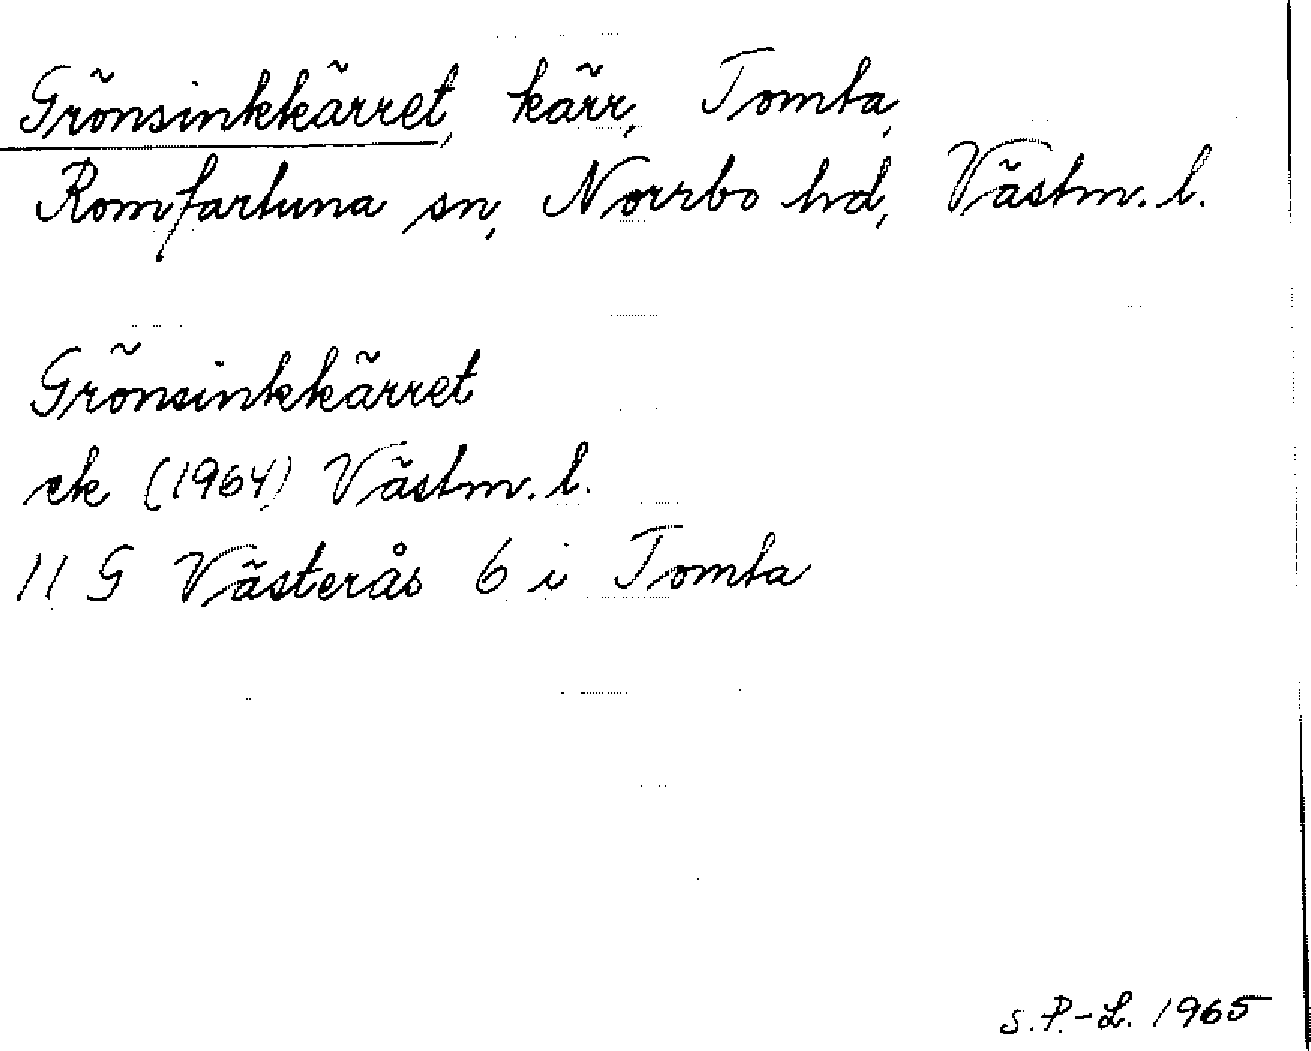 Grönsinkkärret, kärr, Tomta,
Romfartuna sn, Norrbo hd, Västm. l.
Grönsinkkärret
ek (1964) Västm. l.
11 G Västerås 6 i Tomta
S.P.-L. 1965